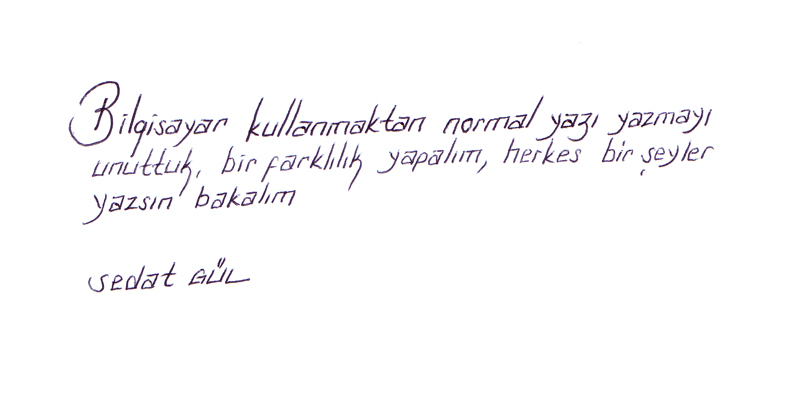 Bilgisayar kullanmaktan normal yazı yazmayı
unuttuk, bir farklılık yapalım, herkes bir şeyler
yazsın bakalım
Sedat GÜL